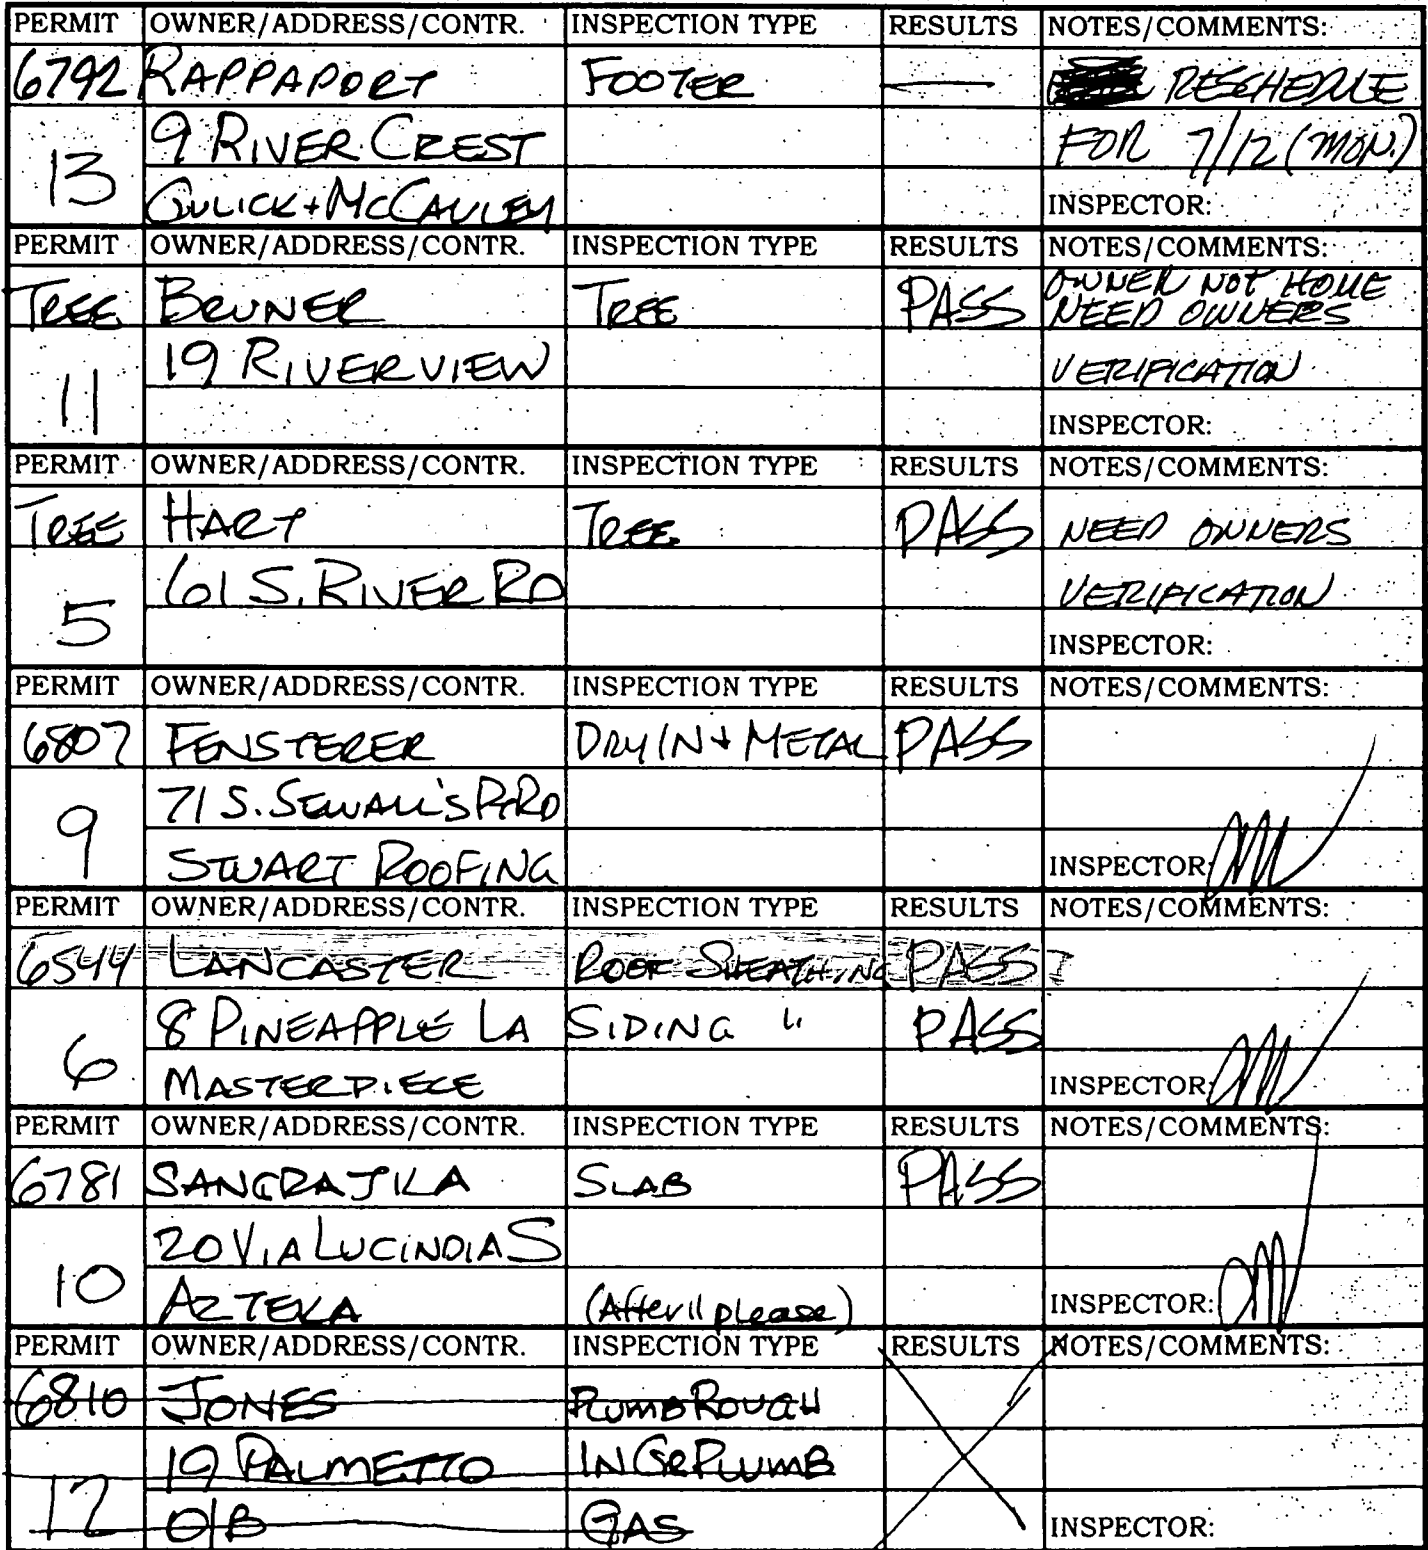 PERMIT OWNER/ADDRESS/CONTR. INSPECTION TYPE RESULTS NOTES/COMMENTS:
6792 RAPPAPORT FOOTER — RESCHEDULE
9 RIVER CREST FOR 7/12 (MON.)
13 GULICK + MCCAULEY INSPECTOR:
PERMIT OWNER/ADDRESS/CONTR. INSPECTION TYPE RESULTS NOTES/COMMENTS:
TREE BRUNER TREE PASS OWNER NOT HOME
NEED OWNERS
19 RIVERVIEW VERIFICATION
11 INSPECTOR:
PERMIT OWNER/ADDRESS/CONTR. INSPECTION TYPE RESULTS NOTES/COMMENTS:
TREE HART TREE PASS NEED OWNERS
61 S. RIVER RD VERIFICATION
5 INSPECTOR:
PERMIT OWNER/ADDRESS/CONTR. INSPECTION TYPE RESULTS NOTES/COMMENTS:
6807 FENSTERER DRY IN + METAL PASS
71 S. SEWALL'S PT RD
9 STUART ROOFING INSPECTOR:
PERMIT OWNER/ADDRESS/CONTR. INSPECTION TYPE RESULTS NOTES/COMMENTS:
6544 LANCASTER ROOF SHEATHING PASS
8 PINEAPPLE LA SIDING " PASS
6 MASTERPIECE INSPECTOR:
PERMIT OWNER/ADDRESS/CONTR. INSPECTION TYPE RESULTS NOTES/COMMENTS:
6781 SLAB PASS
20 VIA LUCINDIA S
10 AZTEKA (After 11 please) INSPECTOR:
PERMIT OWNER/ADDRESS/CONTR. INSPECTION TYPE RESULTS NOTES/COMMENTS:
6810 JONES PLUMB ROUGH
19 PALMETTO IN GR PLUMB
12 O/B GAS INSPECTOR: